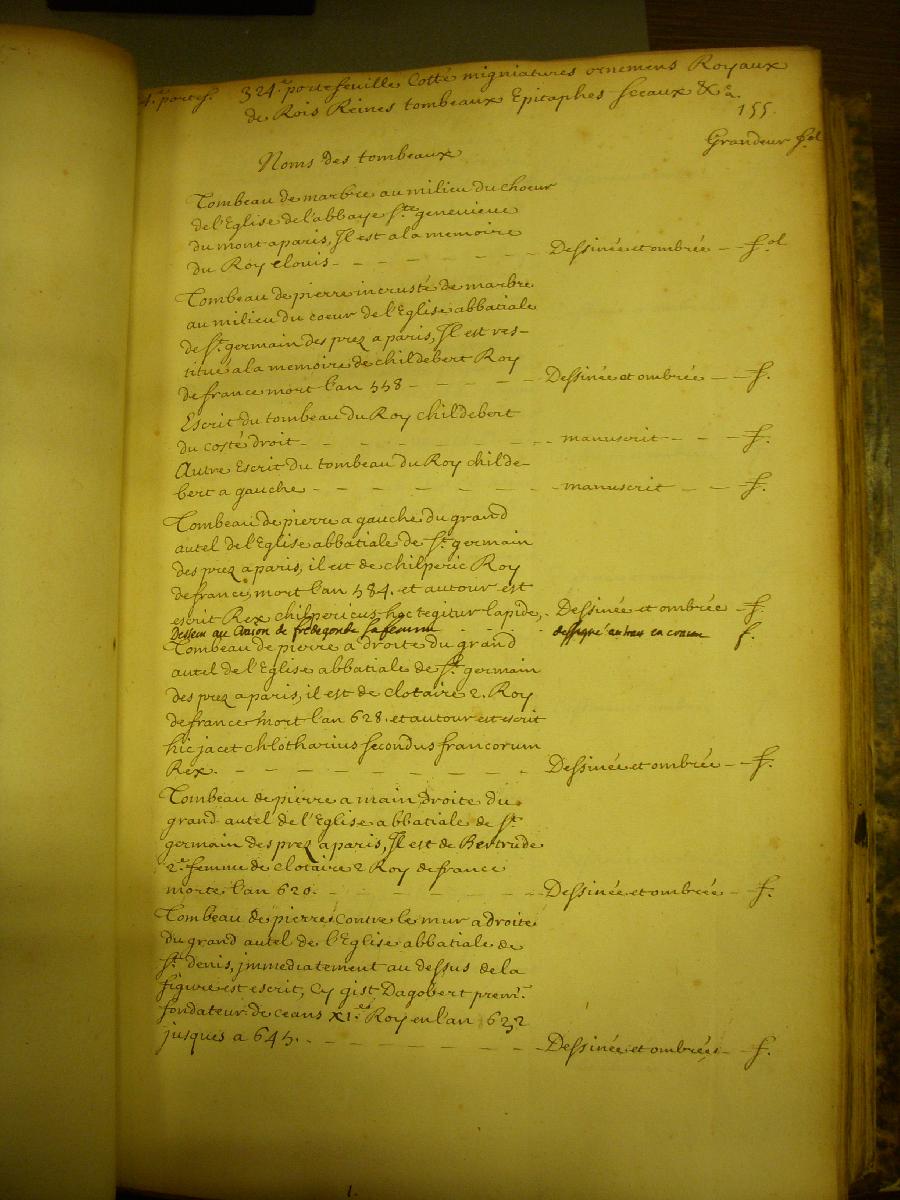 4.e portef. 324.e portefeuille Cotté migniatures ornemens Royaux
de Rois Reines tombeaux Epitaphes sceaux &a.
155.
Grandeur fol
Noms des tombeaux
Tombeau de marbre au milieu du choeur
de l'Eglise de l'abbaye ste genevieve
du mont a paris, Il est a la memoire
du Roy clouis - - - - - - - Dessinée et ombrée - - fol
Tombeau de pierre incrusté de marbre
au milieu du coeur de l'Eglise abbatiale
de st germain des prez a paris, Il est res-
titué a la memoire de childebert Roy
de france mort l'an 558 - - - - - Dessinée et ombrée - - f.
Escrit du tombeau du Roy childebert
du costé droit - - - - - - - manuscrit - - - f.
Autre Escrit du tombeau du Roy childe-
bert a gauche - - - - - - - manuscrit - - - f.
Tombeau de pierre a gauche du grand
autel de l'Eglise abbatiale de st germain
des prez a paris, il est de chilperic Roy
de france, mort l'an 584. et autour est
escrit Rex chilpericus hoc tegitur lapide, - Dessinée et ombrée - f.
Dessein au Craion de fredegonde sa femme - - - dessigné au craion f.
Tombeau de pierre a droite du grand
autel de l'Eglise abbatiale de st germain
des prez a paris, il est de clotaire 2. Roy
de france mort l'an 628. et autour est escrit
hic jacet chlotharius secondus francorum
Rex. - - - - - - - Dessinée et ombrée - - f.
Tombeau de pierre a main droite du
grand autel de l'Eglise abbatiale de st
germain des prez a paris, Il est de Bertrude
2.e femme de clotaire 2 Roy de france
morte l'an 620. - - - - - - Dessinée et ombrée - f.
Tombeau de pierre contre le mur a droite
du grand autel de l'Eglise abbatiale de
st denis, immediatement au dessus de la
figure est escrit, Cy gist Dagobert premr.
fondateur de ceans XI.es Roy en l'an 632
jusques a 645. - - - - - - Dessinée et ombrée - f.